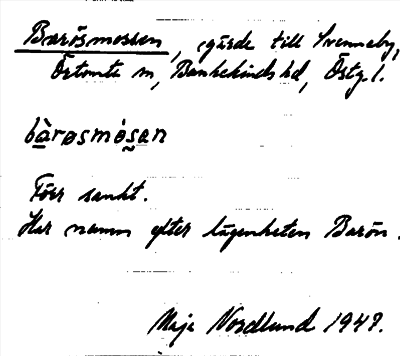 Barösmossen, gärde till Svenneby,
Örtomta sn, Bankekinds hd, Östg. l.
bàrøsmósan
Förr sankt.
Har namn efter lägenheten Barön.
Maja Nordlund 1949.